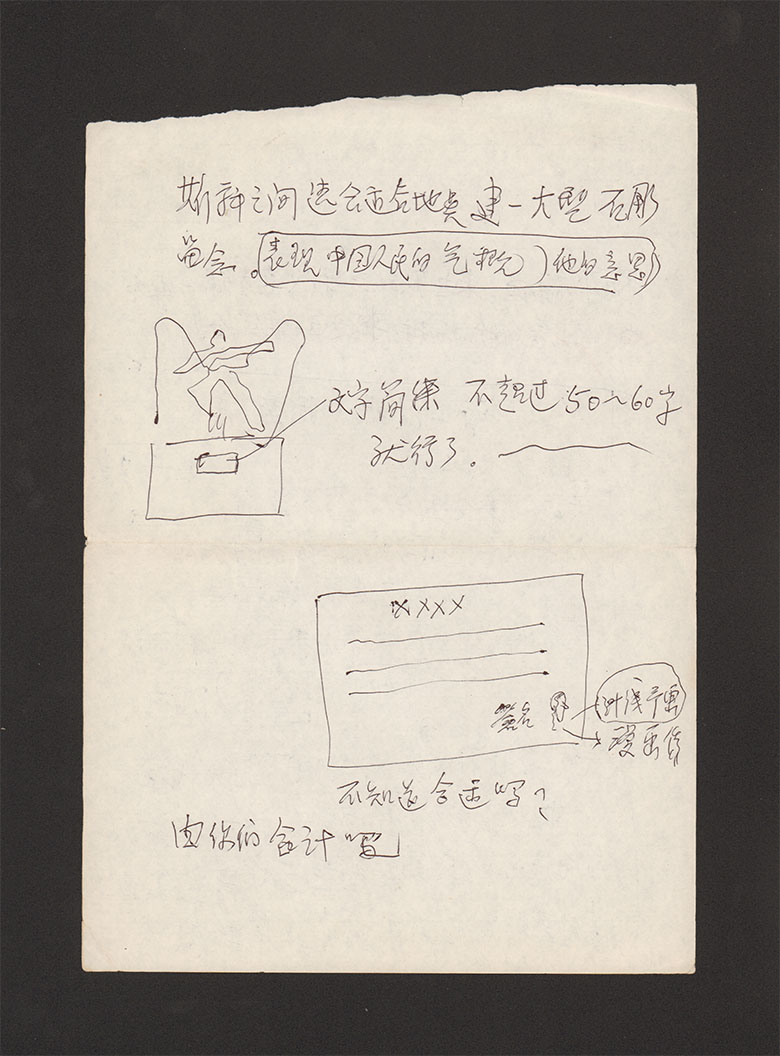 之间选合适合地点建一大型石雕
留念。(表现中国人民的气概)他的意思
文字简 不超过50~60字
就行了。
XXXX
签名
不知道合适吗?
由你们合计吧